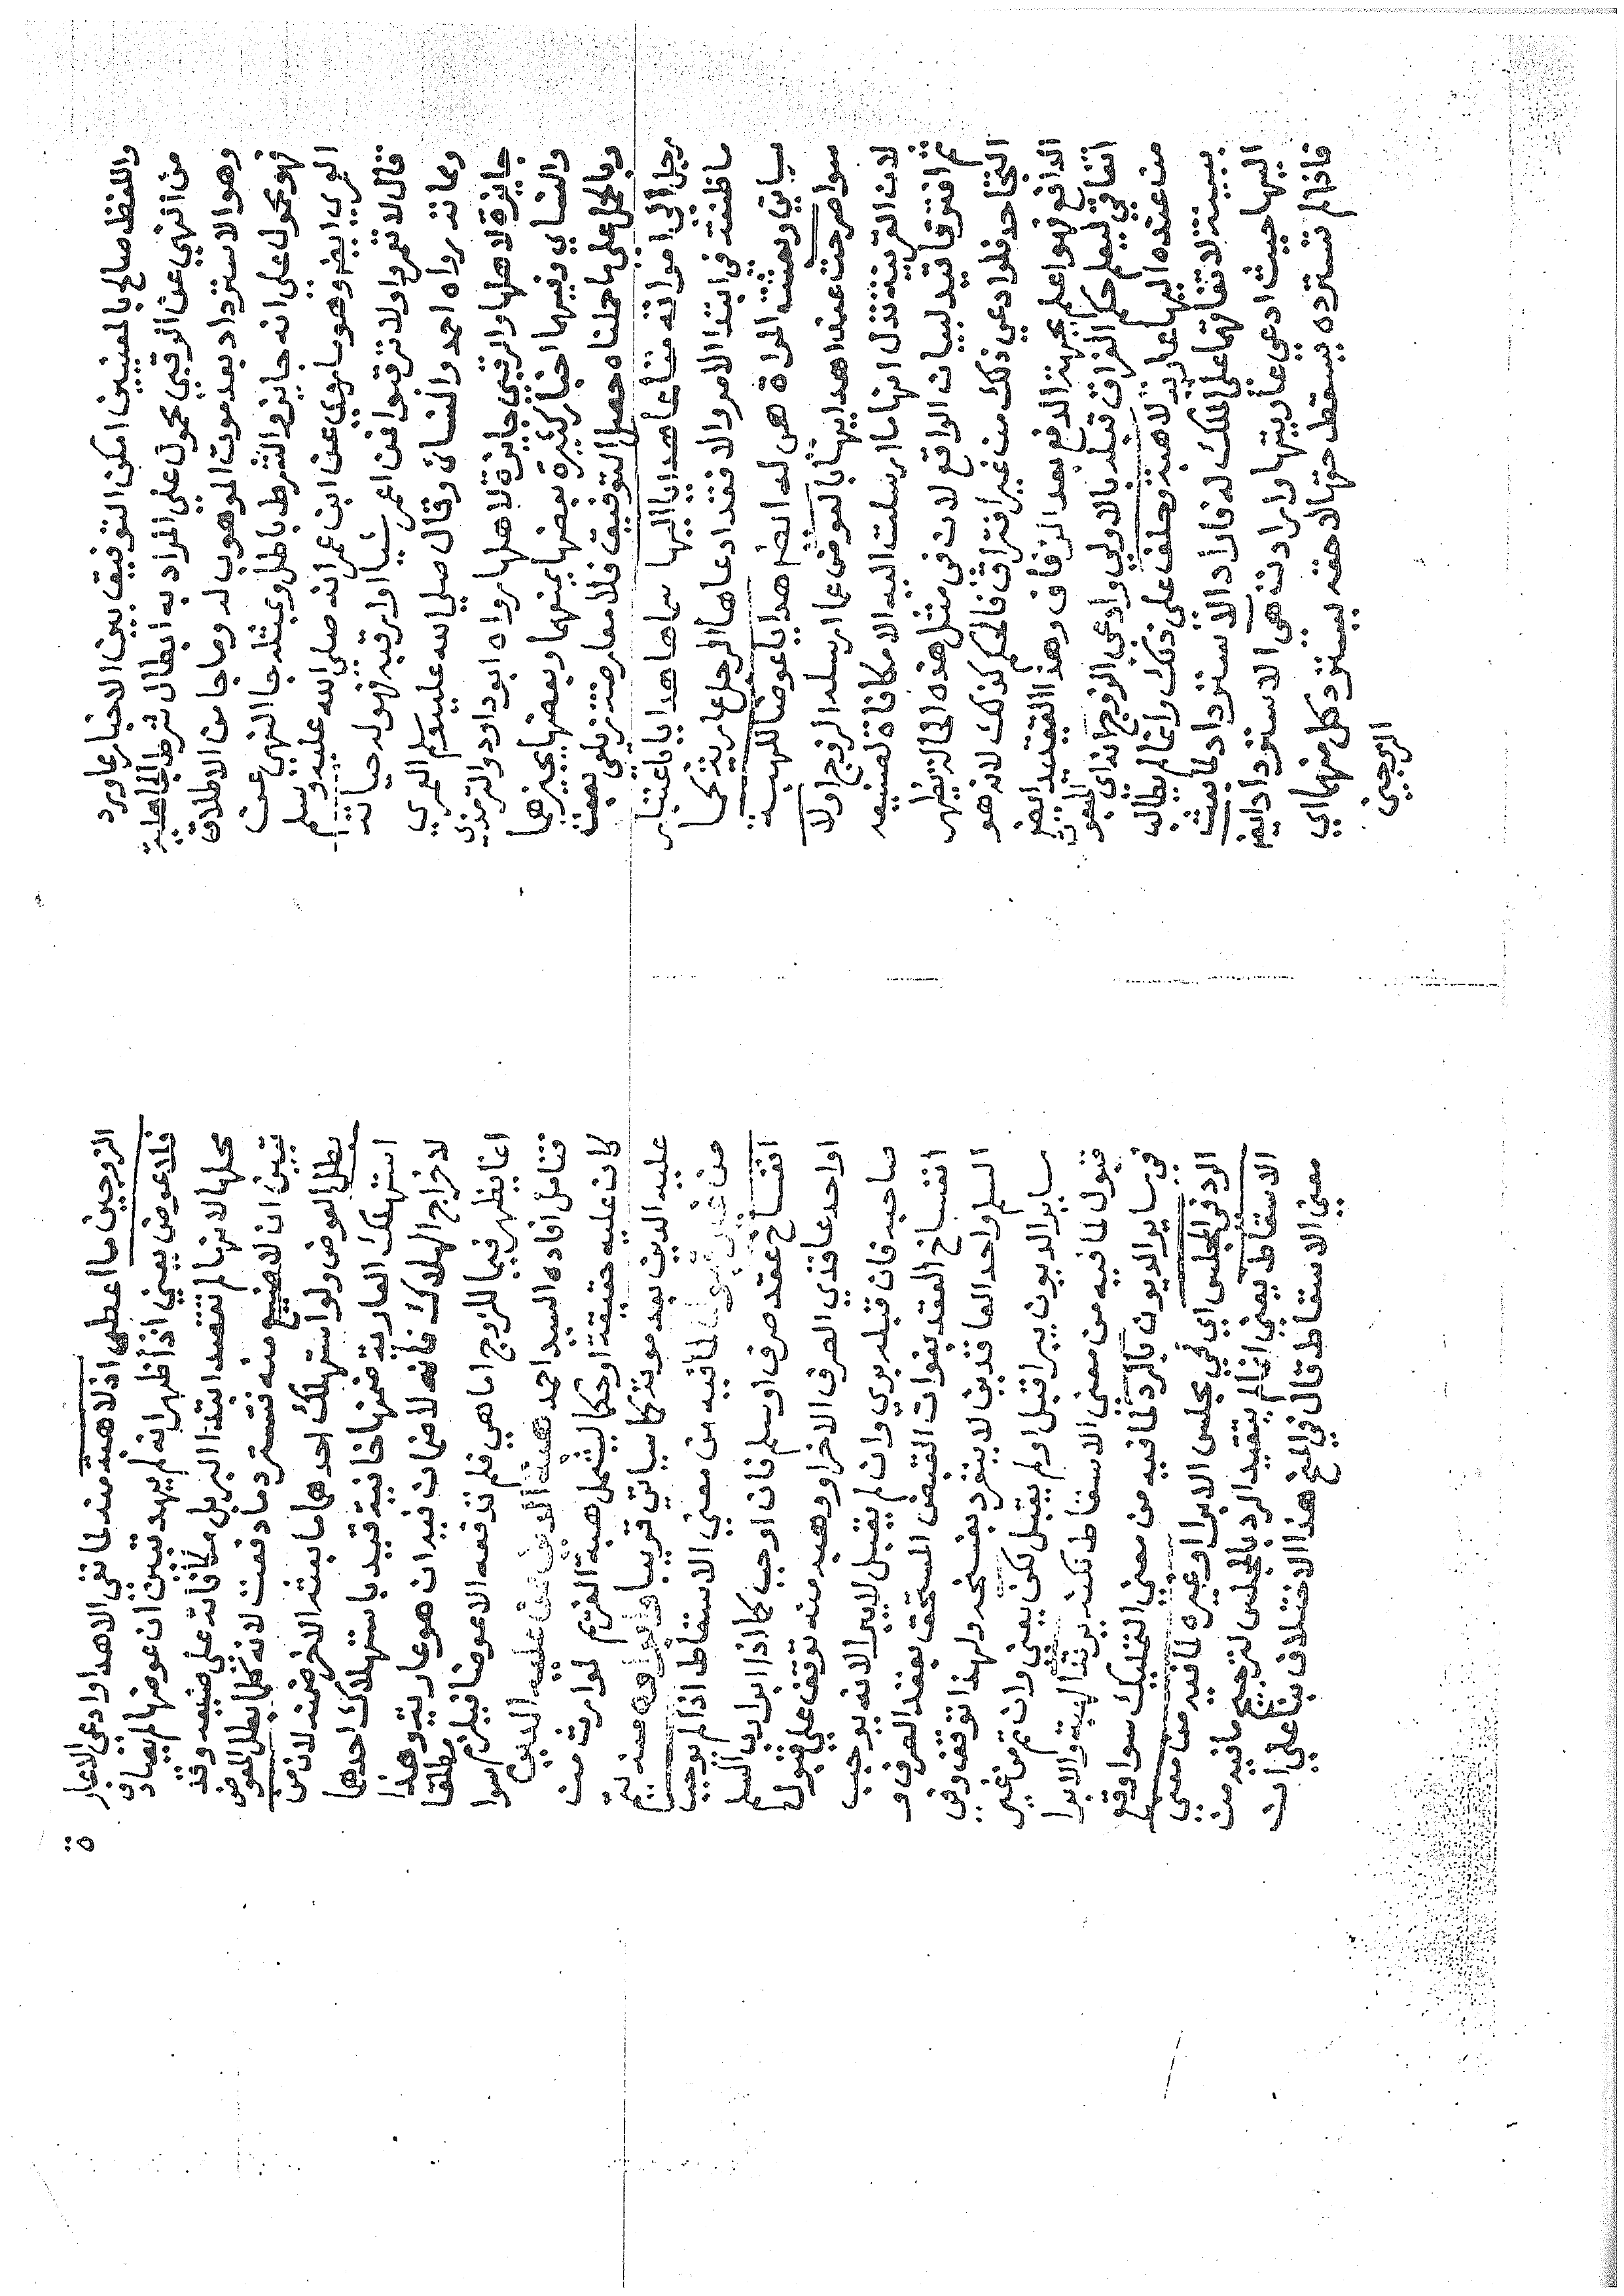 واللفظ صالح بالمعنيين امكن التوفيق بين الاخبار بما ورد
من النهي عن الرقبي محمول علي المراد به ابطال شرط الجاهلية
وهو الاسترداد بعد موت الموهوب له وما جا من الاطلاق
فهو محمول علي انه جايز والشرط باطل وعنه جا النهي عن
العمري ايضا وهو ما روي عن ابن عمر انه صلي الله عليه وسلم
قال لا تعمروا ولا ترقبوا فمن اعمر شيا او ارقبه فهو له حياته
ومماته رواه احمد والنساي وقال صلي الله عليه وسلم العمري
جايزة لاهلها والرقبي جايزة لاهلها رواه ابو داود والترمذي
والنساي وفيهما اخبار كثيرة بعضها يمنعهما وبعضها يجيزهما
وبالحمل علي ما حملناه حصل التوفيق فلا معارضة زيلعي بعث
رجل الي امراته متاعا هدايا اليها سماها هدايا باعتبار
ما ظنته في ابتدا الامر والا فقد ادعاها الرجل عارية كما
سياتي وبعثت المراة هي له ايضا هدايا عوضا للهبة
سوا صرحت عند اهدايها بالعوض عما ارسله الزوج اولا
لان القرينة تدل انها ما ارسلت اليه الا مكافاة لصنيعه
ثم افترقا قيد لبيان الواقع لان في مثل هذه الحالة يظهر
التجاحد فلو ادعي ذلك من غير افتراق فالحكم كذلك لانه هو
الدافع فهو اعلم بجهة الدفع بعد الزفاف وهذا القيد ايضا
اتفاقي ليعلم حكم الفراق قبله بالاولي وادعي الزوج انه اي المبعوث
من عنده اليها عارية لا هبة وحلف علي ذلك وانما لم يطالب
ببينة لاتفاقهما علي الملك له فاراد الاسترداد لما بعث
اليها حيث ادعي عاريتها وارادت هي الاسترداد ايضا
فاذا لم تسترده يسقط حقها لا حقه يسترد كل منهما اي
الزوجين
٥٢
الزوجين ما اعطي اذ لا هبة منه لما نفي الاهدا وادعي الاعار
فلا عوض يعني اذا ظهر انه لم يهد تبين ان عوضها لم يصادف
محلها لانها لم تقصد ابتدا البر بل مكافاته علي صنيعه وقد
تبين ان لا صنيع منه فتسترد ما دفعت لانه كلما بطل المعوض
بطل العوض ولو استهلك احدهما ما بعثه الاخر ضمنه لان من
استهلك العارية ضمنها خانية قيد باستهلاك احدهما
لاخراج الهلاك فانه لا ضمان فيه ان هو عارية وهذا
انما يظهر فيما للزوج اما هي فلم تدفعه الا عوضا فيلزم مطلقا
فتامل افاده السيد احمد هبة الدين ممن عليه الدين سوا
كان عليه حقيقة او حكما ليشمل هبة الغريم لوارث من
عليه الدين بعد موته كما سياتي قريبا وابراوه عنه يتم
من غير قبول لما فيه من معني الاسقاط اذا لم يوجب
انفساخ عقد صرف او سلم فان اوجب كما اذا ابرا رب السلم
او احد عاقدي الصرف الاخر او وهبه منه توقف علي قبول
صاحبه فان قبله بري وان لم يقبل لا يبرا لانه يوجب
انفساخ العقد بفوات القبض المستحق بعقد الصرف و
السلم واحد العاقدين لا ينفرد بفسخه ولهذا توقف وفي
ساير الديون يبرا قبل او لم يقبل لكن يعني وان تم من غير
قبول لما فيه من معني الاسقاط لكنه يرتد الهبة والابرا
في ساير الديون بالرد لما فيه من معني التمليك سوا وقع
الرد في المجلس اي في مجلس الابرا او غيره لما فيه من معني
الاسقاط يعني انما لم يتقيد الرد بالمجلس لترجيح ما فيه من
معني الاسقاط قال في المنح هذا الاختلاف بنا علي ان